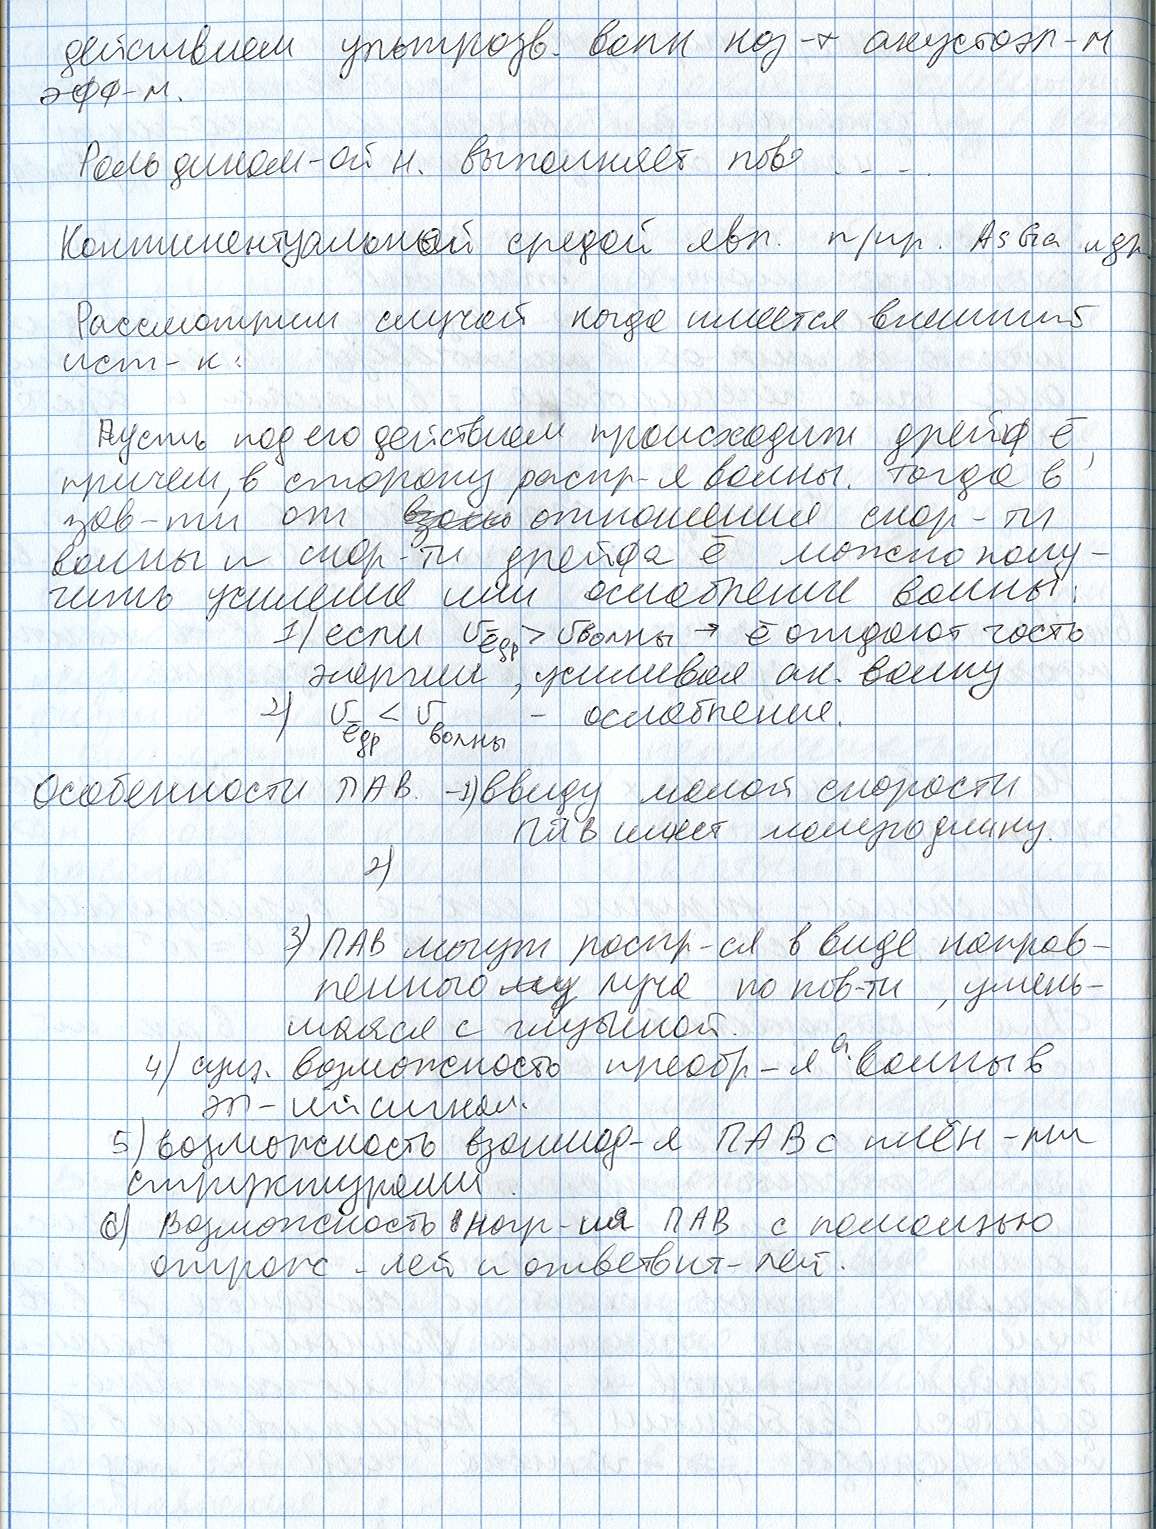 действием ультразв. волн наз-т акустоэл-м
эфф-м.
Роль динам-ой н. выполняет пов
Континентуальной средой явл. п/пр. AsGa и др.
Рассмотрим случай когда имеется внешний
ист-к:
Пусть под его действием происходит дрейф ē,
причем, в сторону распр-я волны. Тогда в
зав-ти от отношения скор-ти
волны и скор-ти дрейфа ē можно полу-
чить усиление или ослабление волны:
1) если υēдр > υволны → ē отдают часть
энергии, усиливая ак. волну
2) υēдр < υволны - ослабление.
Особенности ПАВ. -1) ввиду малой скорости
ПАВ имеет малую длину.
2)
3) ПАВ могут распр-ся в виде направ-
ленного луча по пов-ти, умень-
шаясь с глубиной.
4) сущ. возможность преобр-я а. волны в
эл-ий сигнал.
5) возможность взаимод-я ПАВ с плён-ми
структурами.
6) Возможность напр-ия ПАВ с помощью
отраж-лей и ответвит-лей.